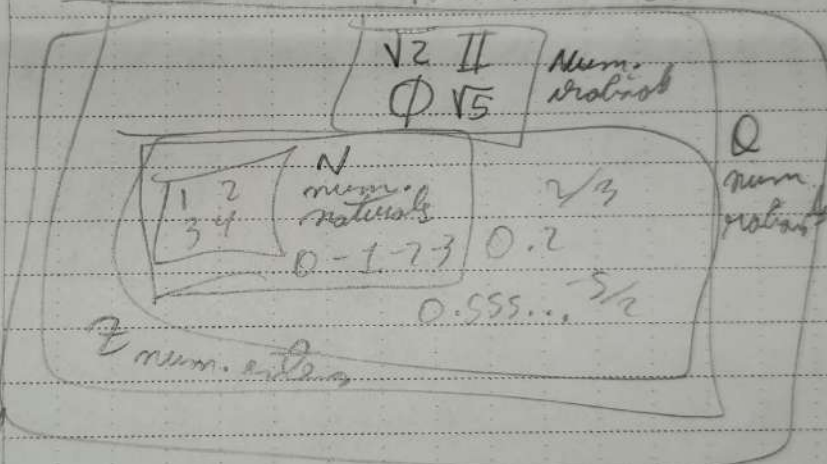 √2 π
Φ √5
Num.
irracional
Q
num
racional
1 2
3 4
N
num.
naturals
0 -1 -2 -3
2/3
0.2
0.555...
-5/2
Z
num. enters